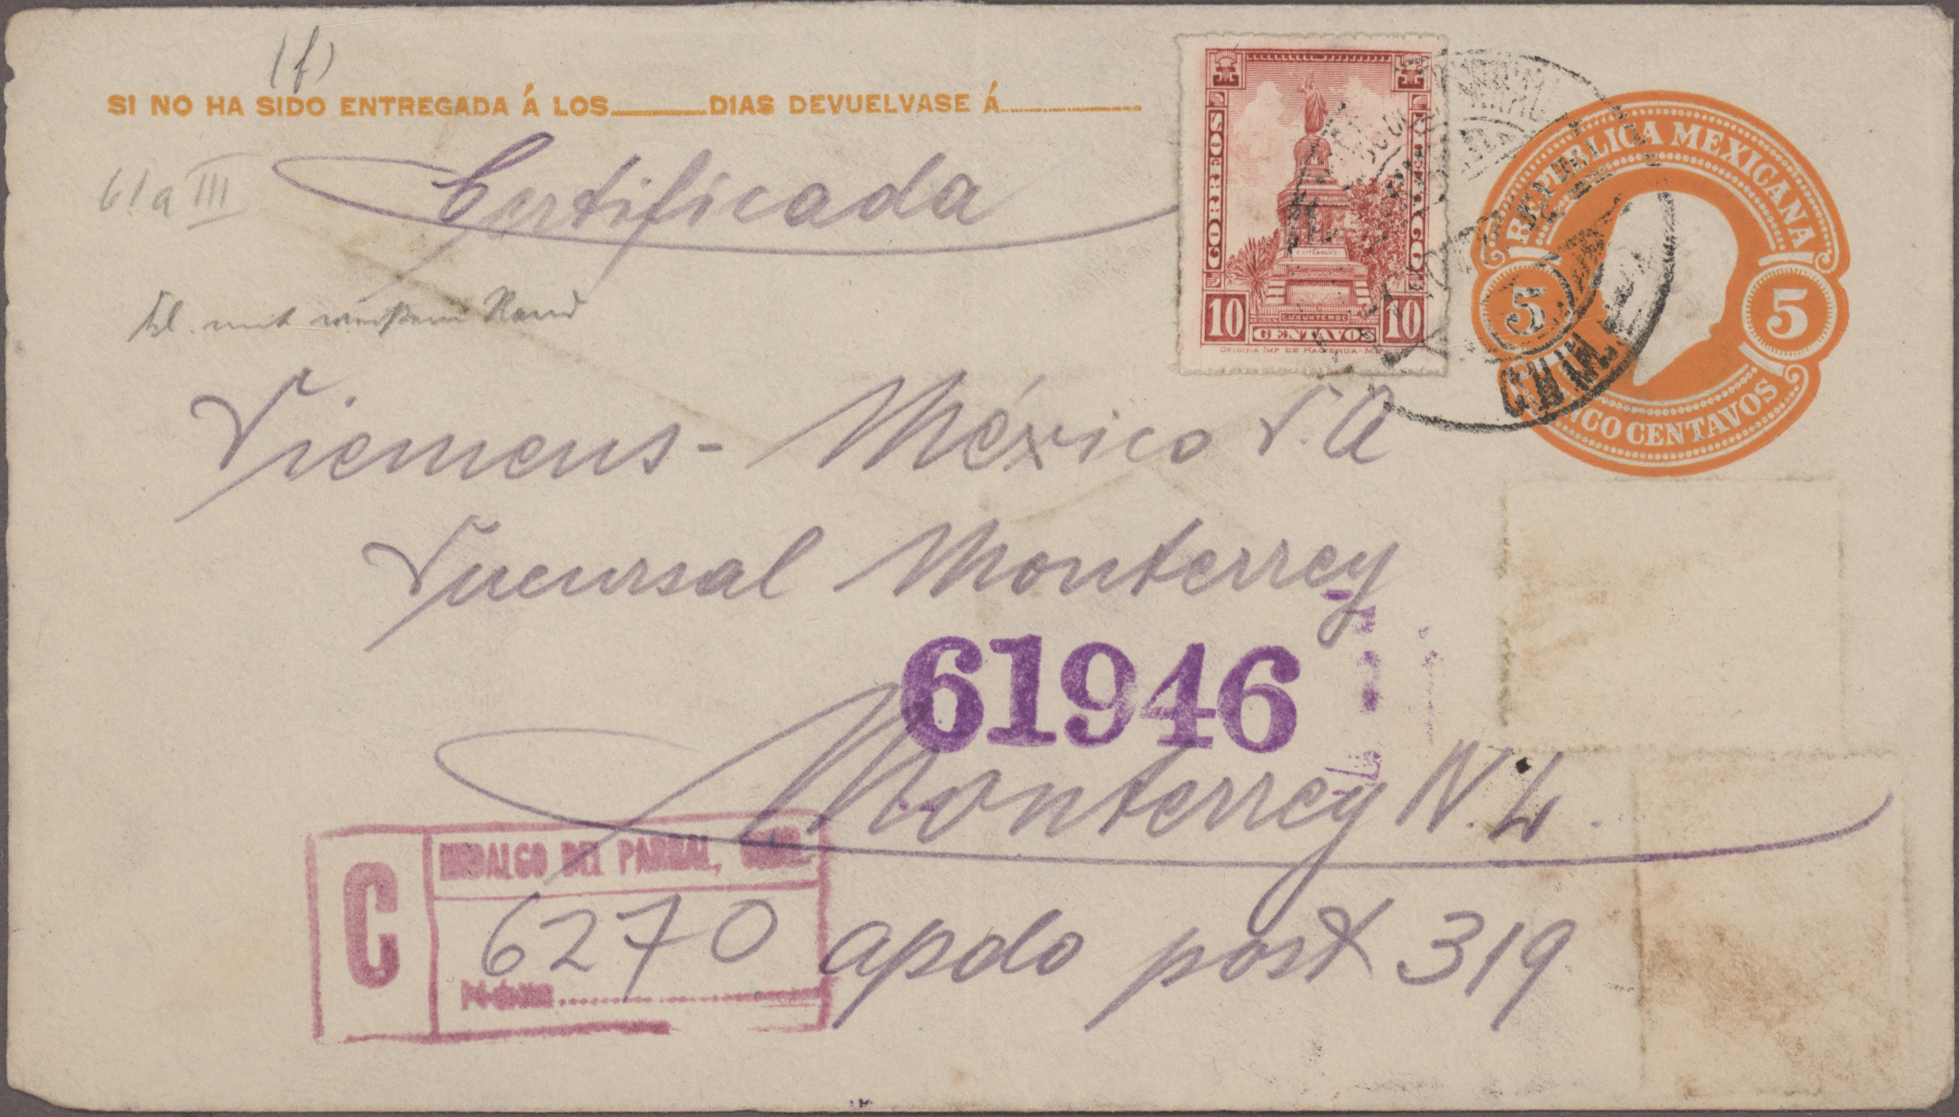 (f)
SI NO HA SIDO ENTREGADA Á LOS DIAS DEVUELVASE Á
61a III
Certificada
mit weißem Rand
CORREOS MEXICO
10 CENTAVOS 10
CUAUHTEMOC
OFICINA IMP. DE HACIENDA-
REPUBLICA MEXICANA
5 5
CINCO CENTAVOS
CHIH.
Siemens- México S.A
Sucursal Monterrey
61946
Monterrey N. L.
C
HIDALGO DEL PARRAL, CHIH.
6270
apdo post 319